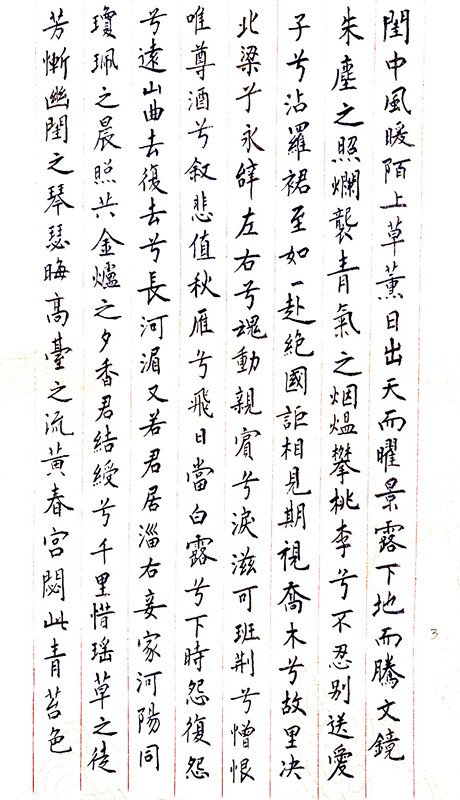 閨中風暖陌上草薰日出天而曜景露下地而騰文鏡
朱塵之照爛襲青氣之烟煴攀桃李兮不忍别送愛
子兮沾羅裙至如一赴絕國詎相見期視喬木兮故里决
北梁兮永辭左右兮魂動親賓兮淚滋可班荆兮憎恨
唯尊酒兮叙悲值秋雁兮飛日當白露兮下時怨復怨
兮遠山曲去復去兮長河湄又若君居淄右妾家河陽同
瓊珮之晨照共金爐之夕香君結綬兮千里惜瑶草之徒
芳慚幽閨之琴瑟晦高臺之流黃春宮閟此青苔色
3